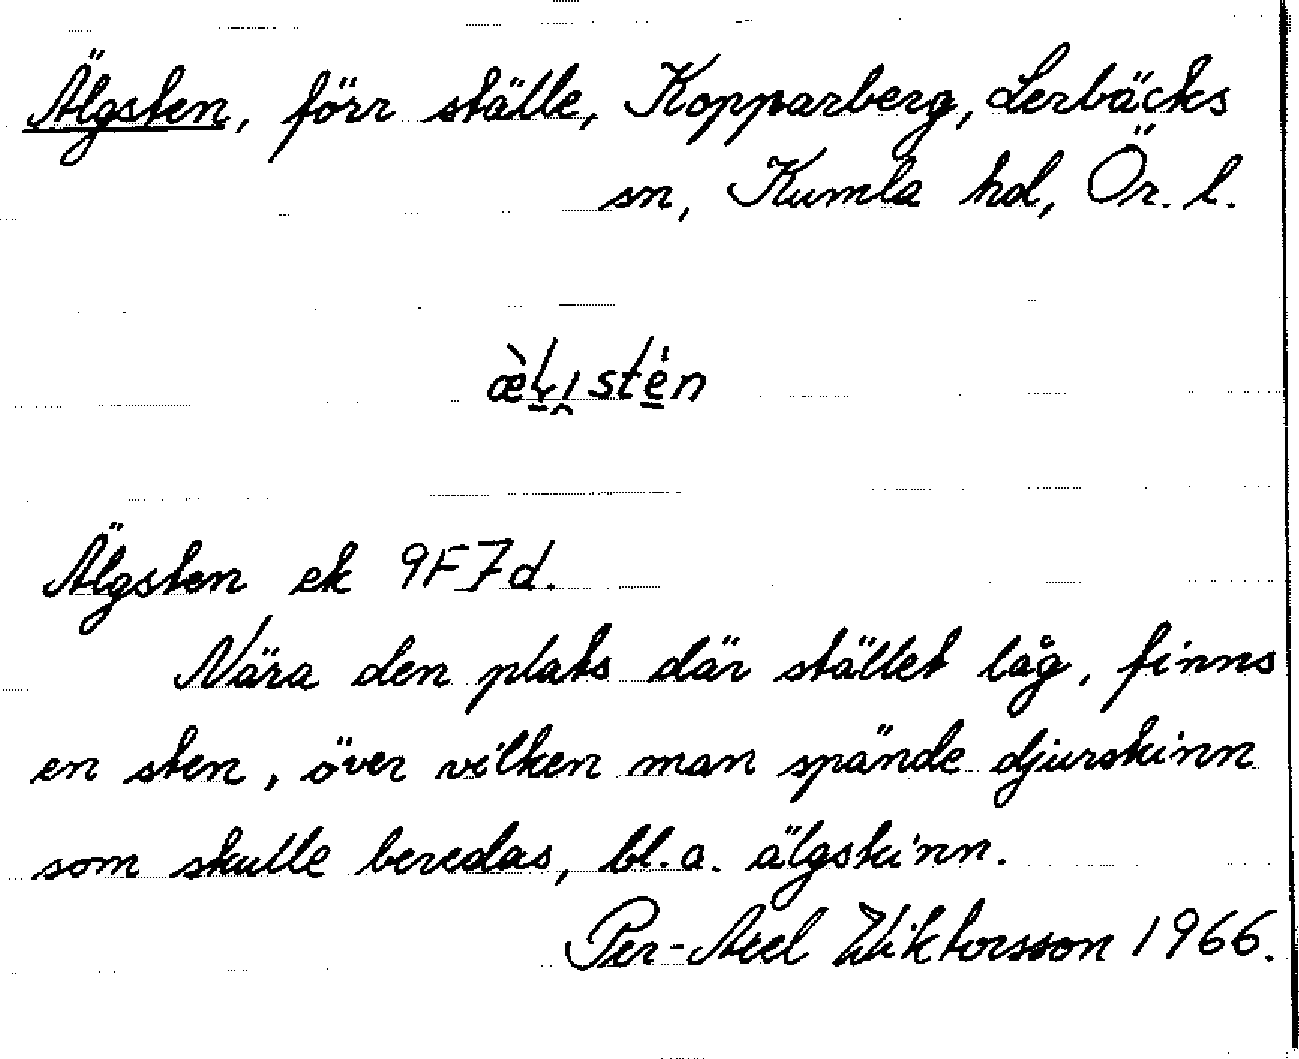 Älgsten, förr ställe, Kopparberg, Lerbäcks
sn, Kumla hd, Ör. l.
Älgsten ek 9F7d.
Nära den plats där stället låg, finns
en sten, över vilken man spände djurskinn
som skulle beredas, bl.a. älgskinn.
Per-Axel Wiktorsson 1966.